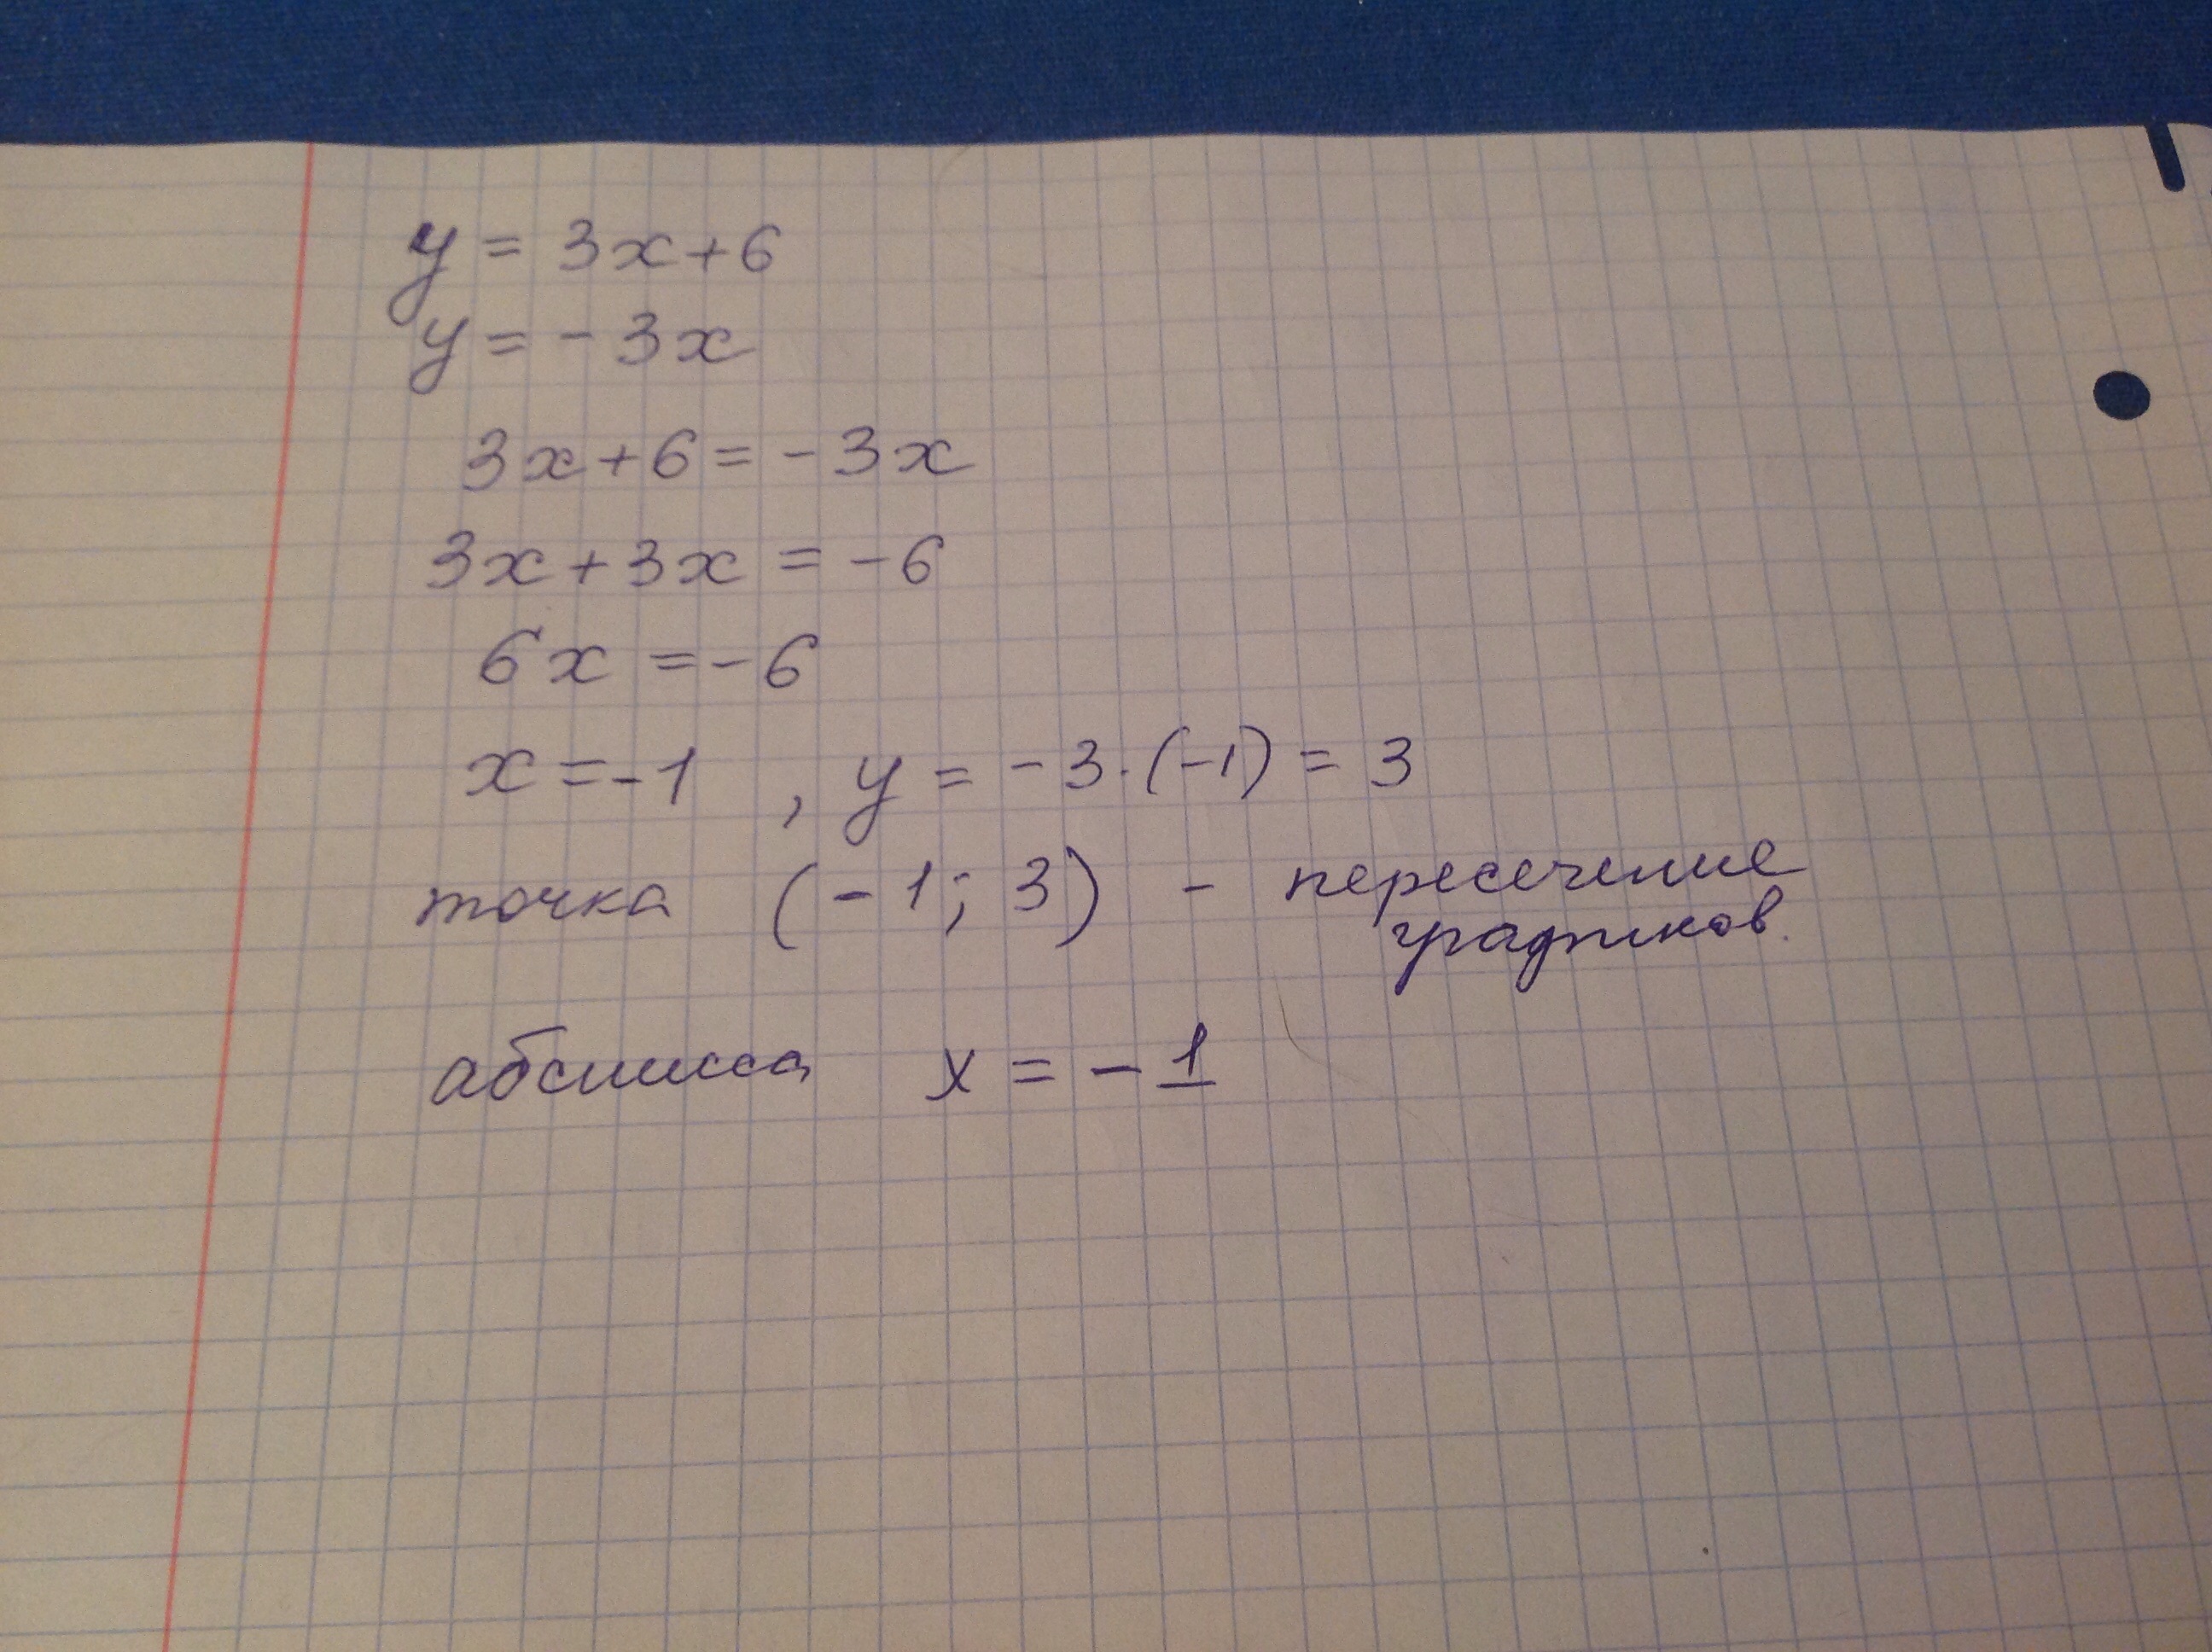 y = 3x+6
y = - 3x
3x+6 = - 3x
3x + 3x = - 6
6x = - 6
x = -1 , y = - 3 · (-1) = 3
точка (-1; 3) - пересечение
графиков.
абсцисса x = - 1